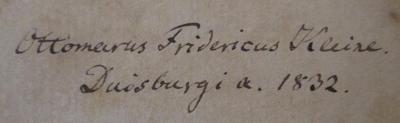 Ottomarus Fridericus Kleine.
Duisburgi a. 1832.